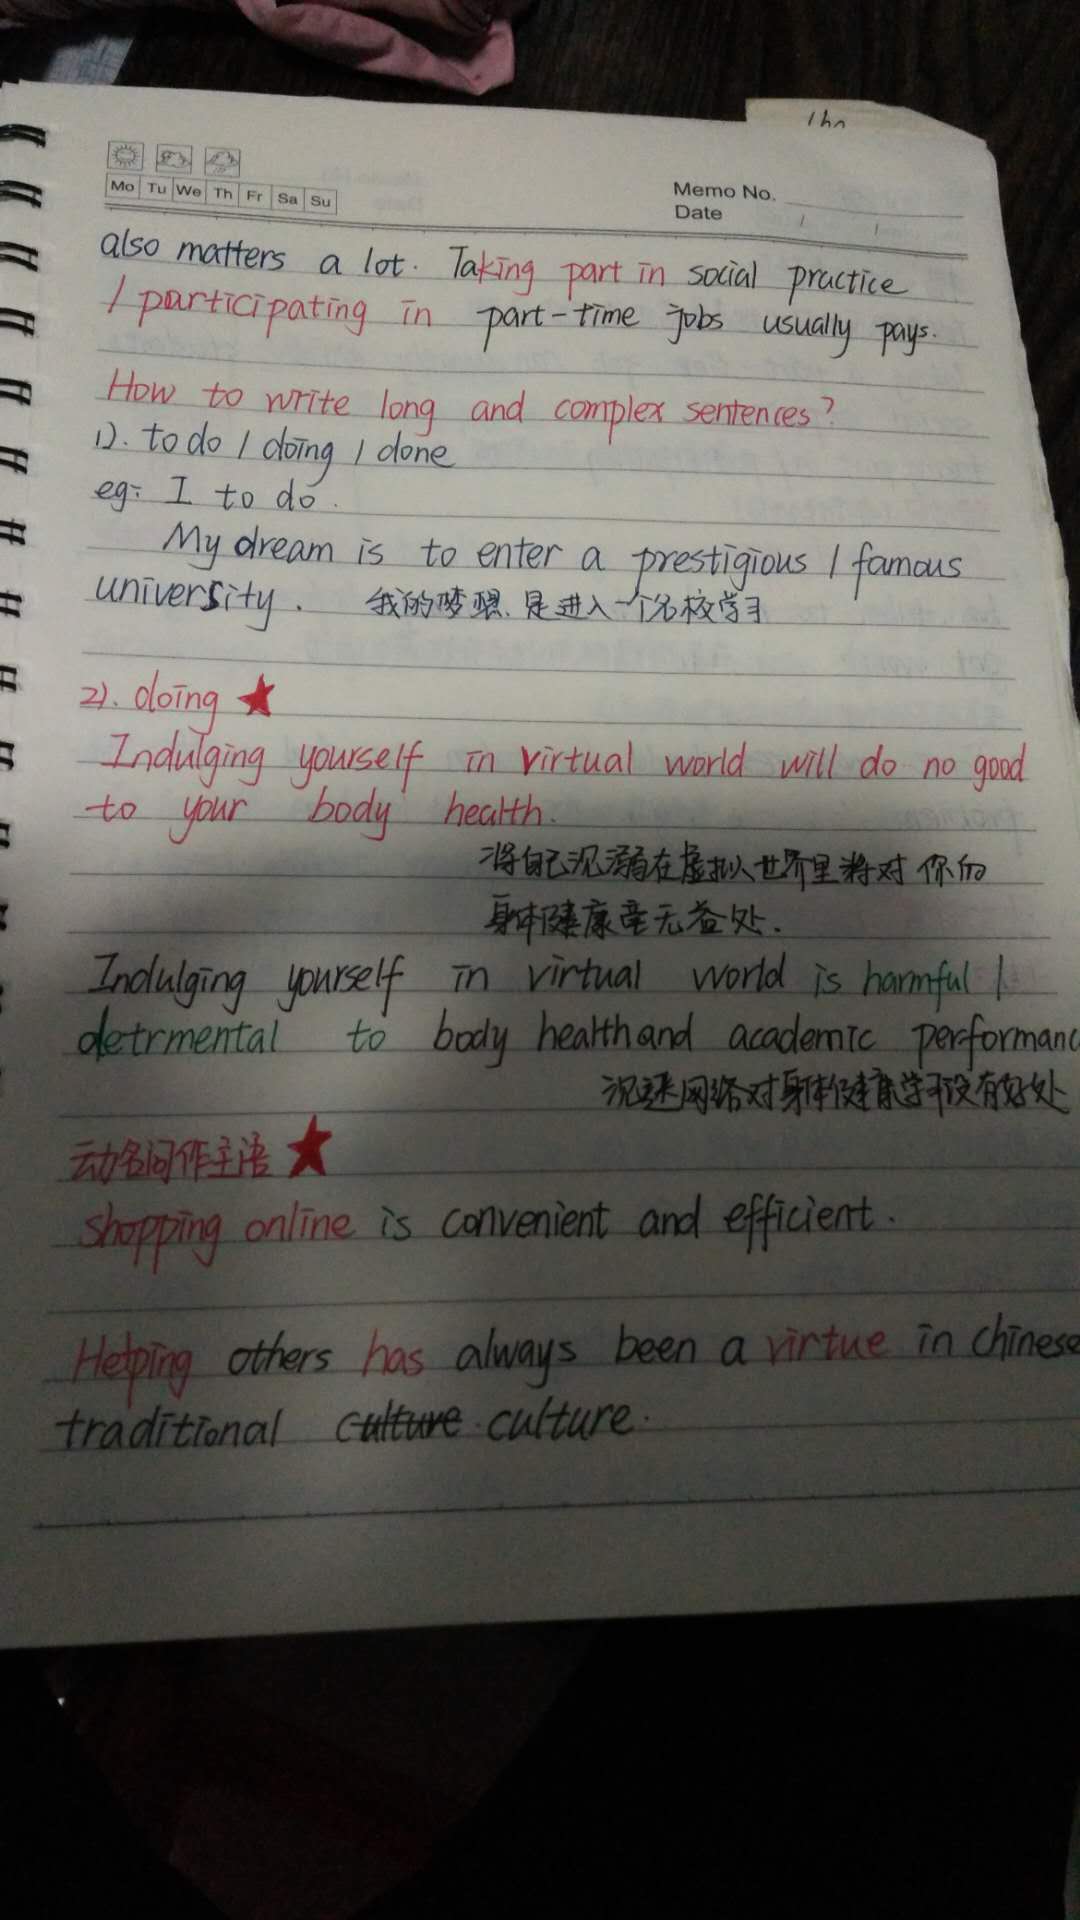 Mo Tu We Th Fr Sa Su
Memo No.
Date / /
also matters a lot. Taking part in social practice
/ participating in part-time jobs usually pays.
How to write long and complex sentences?
1). to do / doing / done
eg: I to do.
My dream is to enter a prestigious / famous
university. 我的梦想.是进入一个名校学习
2). doing ★
Indulging yourself in virtual world will do no good
to your body health.
将自己沉溺在虚拟世界里将对你的
身体健康毫无益处.
Indulging yourself in virtual world is harmful /
detrmental to body health and academic performanc
沉迷网络对身体健康学习没有好处
动名词作主语 ★
shopping online is convenient and efficient.
Helping others has always been a virtue in chinese
traditional culture. culture.